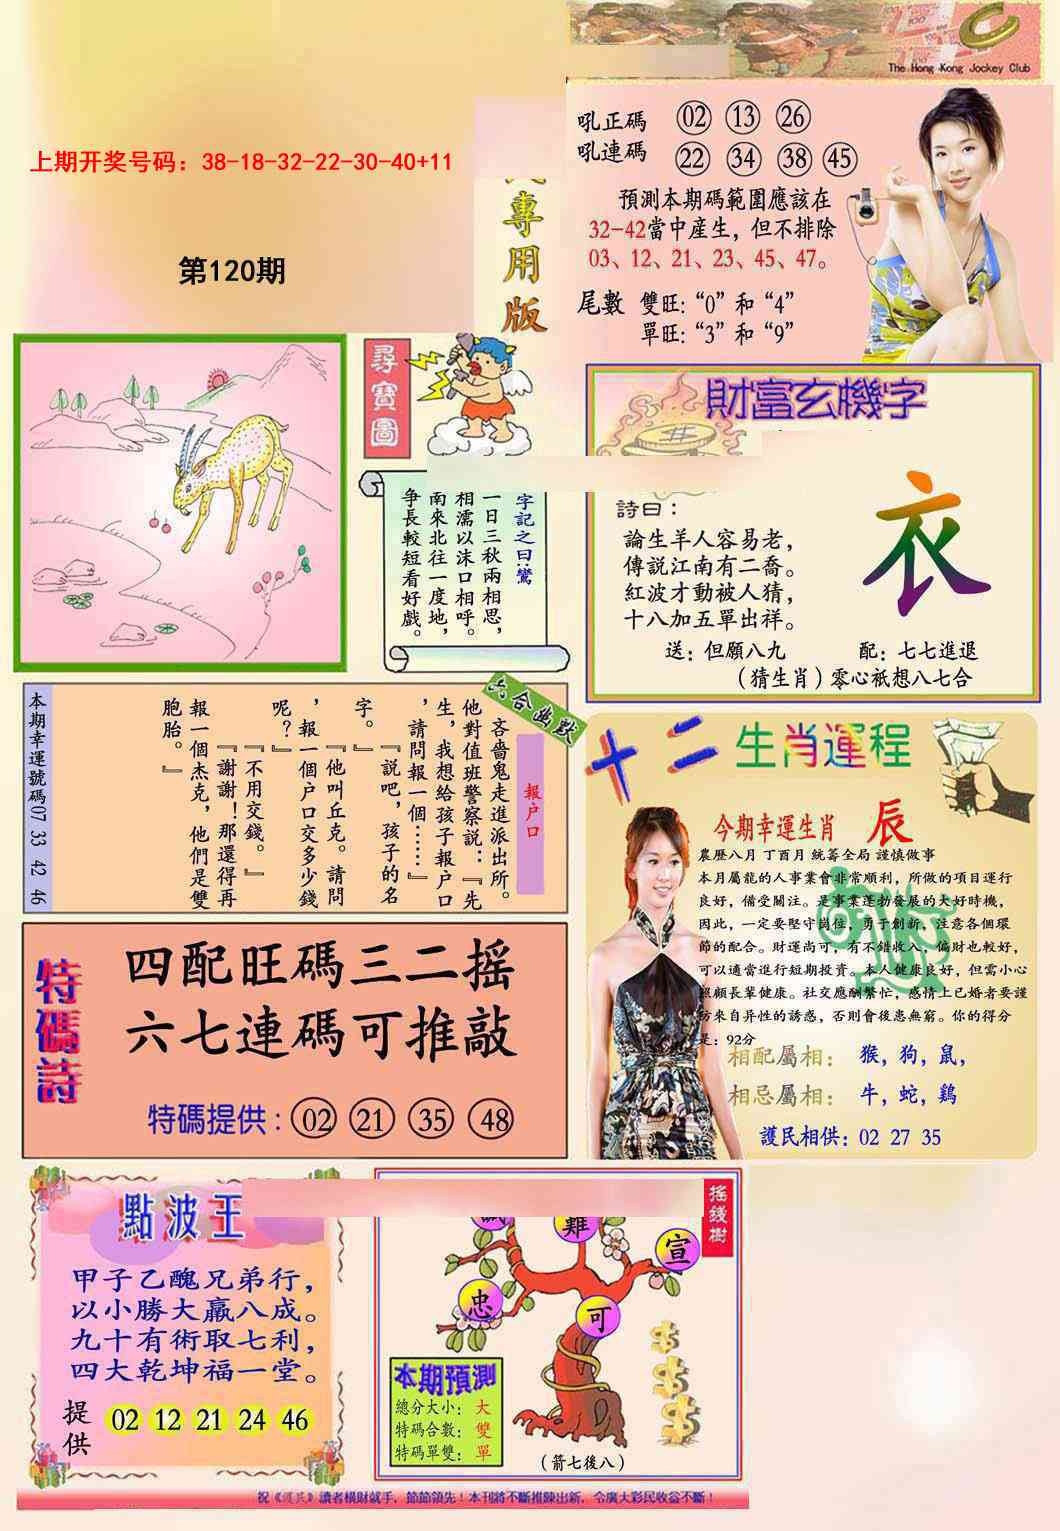 The Hong Kong Jockey Club
上期开奖号码：38-18-32-22-30-40+11
第120期
專用版
吼正碼 02 13 26
吼連碼 22 34 38 45
預測本期碼範圍應該在
32-42當中産生，但不排除
03、12、21、23、45、47。
尾數 雙旺：“0”和“4”
單旺：“3”和“9”
尋寶圖
字記之曰：鶯
一日三秋兩相思，
相濡以沫口相呼。
南來北往一度地，
争長較短看好戲。
財富玄機字
詩曰：
論生羊人容易老，
傳説江南有二喬。
紅波才動被人猜，
十八加五單出祥。
衣
送：但願八九 配：七七進退
（猜生肖）零心祇想八七合
六合幽默
報户口
吝嗇鬼走進派出所。
他對值班警察説：『先
生，我想給孩子報户口
，請問報一個……』
『説吧，孩子的名
字。』
『他叫丘克。請問
，報一個户口交多少錢
呢？』
『不用交錢。』
『謝謝！那還得再
報一個杰克，他們是雙
胞胎。』
本期幸運號碼07 33 42 46
十二生肖運程
今期幸運生肖 辰
農歷八月 丁酉月 統籌全局 謹慎做事
本月屬龍的人事業會非常順利，所做的項目運行
良好，備受關注。是事業蓬勃發展的大好時機，
因此，一定要堅守崗位，勇于創新，注意各個環
節的配合。財運尚可，有不錯收入，偏財也較好，
可以適當進行短期投資。本人健康良好，但需小心
照顧長輩健康。社交應酬繁忙，感情上已婚者要謹
防來自异性的誘惑，否則會後患無窮。你的得分
是：92分
相配屬相：猴，狗，鼠，
相忌屬相：牛，蛇，鷄
護民相供：02 27 35
特碼詩
四配旺碼三二摇
六七連碼可推敲
特碼提供：02 21 35 48
點波王
甲子乙醜兄弟行，
以小勝大贏八成。
九十有術取七利，
四大乾坤福一堂。
提供 02 12 21 24 46
摇錢樹
難
宣
忠
可
本期預測
總分大小：大
特碼合數：雙
特碼單雙：單
（箭七後八）
祝《護民》讀者横財就手，節節領先！本刊將不斷推陳出新，令廣大彩民收益不斷！